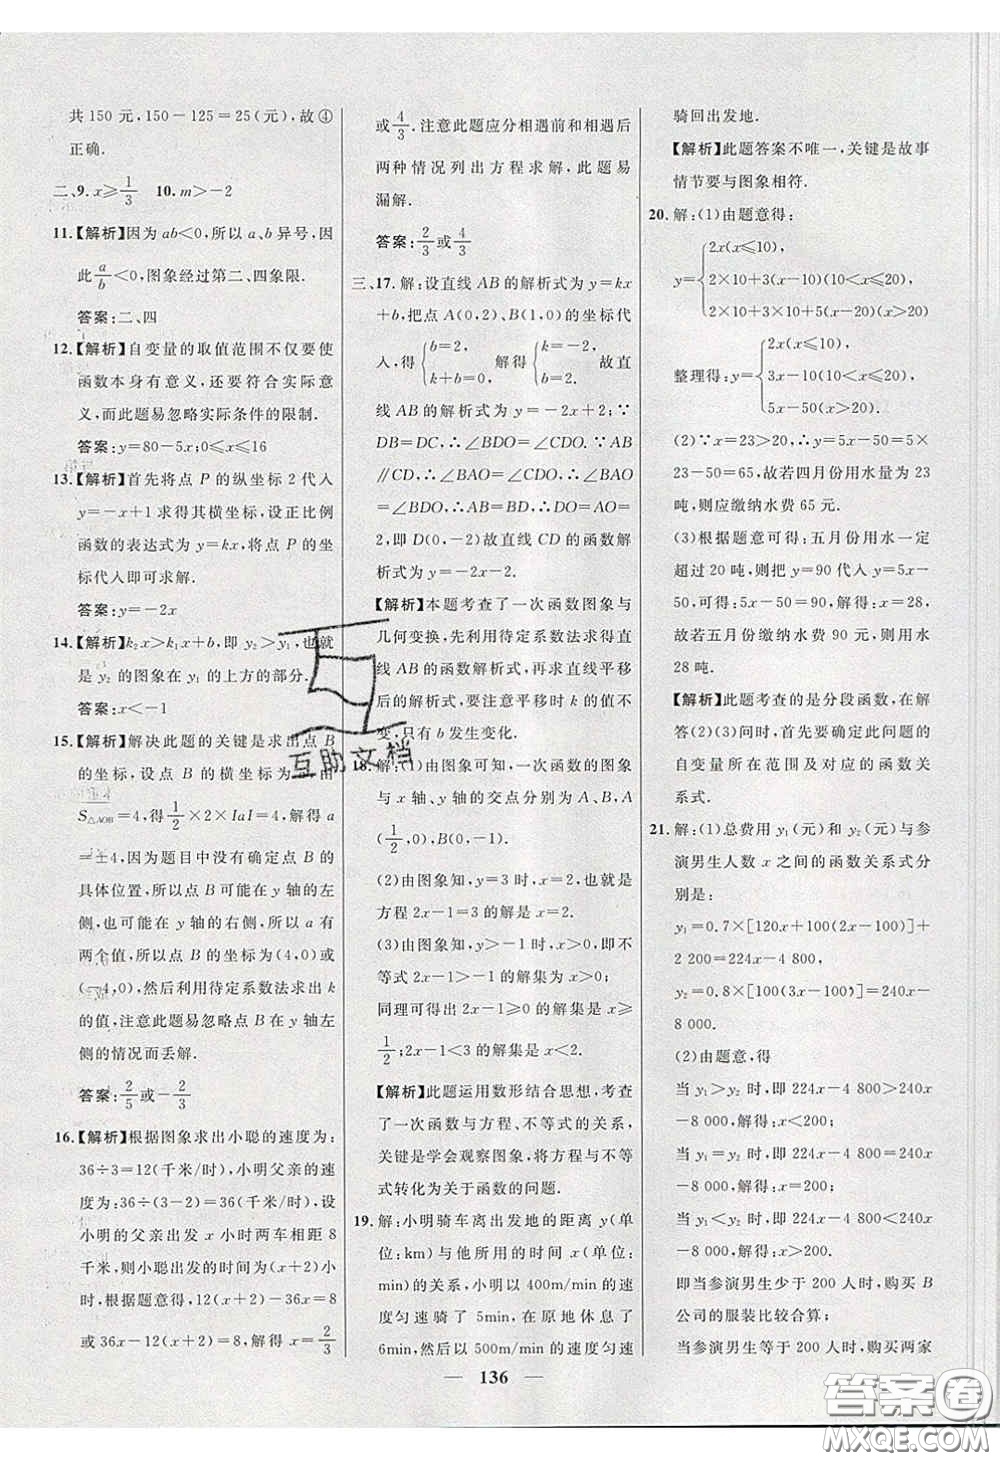 共150元,150-125=25(元),故④
正确.
二、9.x≥1/3 10.m>-2
11.【解析】因为ab<0,所以a、b异号,因
此a/b<0,图象经过第二、四象限.
答案:二、四
12.【解析】自变量的取值范围不仅要使
函数本身有意义,还要符合实际意
义,而此题易忽略实际条件的限制.
答案:y=80-5x;0≤x≤16
13.【解析】首先将点P的纵坐标2代入
y=-x+1求得其横坐标,设正比例
函数的表达式为y=kx,将点P的坐
标代入即可求解.
答案:y=-2x
14.【解析】k₂x>k₁x+b,即y₂>y₁,也就
是y₂的图象在y₁的上方的部分.
答案:x<-1
15.【解析】解决此题的关键是求出点B
的坐标,设点B的横坐标为 由
S△AOB=4,得1/2×2×IaI=4,求得a
=±4,因为题目中没有确定点B的
具体位置,所以点B可能在y轴的左
侧,也可能在y轴的右侧,所以a有
两个值,即点B的坐标为(4,0)或
(-4,0),然后利用待定系数法求出k
的值,注意此题易忽略点B在y轴左
侧的情况而丢解.
答案:2/5或-2/3
16.【解析】根据图象求出小聪的速度为:
36÷3=12(千米/时),小明父亲的速
度为:36÷(3-2)=36(千米/时),设
小明的父亲出发x小时两车相距8
千米,则小聪出发的时间为(x+2)小
时,根据题意得,12(x+2)-36x=8
或36x-12(x+2)=8,解得x=2/3
或4/3.注意此题应分相遇前和相遇后
两种情况列出方程求解,此题易
漏解.
答案:2/3或4/3
三、17.解:设直线AB的解析式为y=kx
+b,把点A(0,2)、B(1,0)的坐标代
入,得{b=2, k+b=0, 解得{k=-2, b=2, 故直
线AB的解析式为y=-2x+2;∵
DB=DC,∴∠BDO=∠CDO.∵AB
∥CD,∴∠BAO=∠CDO,∴∠BAO
=∠BDO,∴AB=BD,∴AO=DO=
2,即D(0,-2)故直线CD的函数解
析式为y=-2x-2.
【解析】本题考查了一次函数图象与
几何变换,先利用待定系数法求得直
线AB的函数解析式,再求直线平移
后的解析式,要注意平移时k的值不
变,只有b发生变化.
18.解:(1)由图象可知,一次函数的图象
与x轴、y轴的交点分别为A、B,A
(1/2,0),B(0,-1).
(2)由图象知,y=3时,x=2,也就是
方程2x-1=3的解是x=2.
(3)由图象知,y>-1时,x>0,即不
等式2x-1>-1的解集为x>0;
同理可得出2x-1≥0的解集是x≥
1/2;2x-1<3的解集是x<2.
【解析】此题运用数形结合思想,考查
了一次函数与方程、不等式的关系,
关键是学会观察图象,将方程与不等
式转化为关于函数的问题.
19.解:小明骑车离出发地的距离y(单
位:km)与他所用的时间x(单位:
min)的关系,小明以400m/min的速
度匀速骑了5min,在原地休息了
6min,然后以500m/min的速度匀速
骑回出发地.
【解析】此题答案不唯一,关键是故事
情节要与图象相符.
20.解:(1)由题意得:
2x(x≤10),
y={2×10+3(x-10)(10<x≤20),
2×10+3×10+5(x-20)(x>20)
2x(x≤10),
整理得:y={3x-10(10<x≤20),
5x-50(x>20).
(2)∵x=23>20,∴y=5x-50=5×
23-50=65,故若四月份用水量为23
吨,则应缴纳水费65元.
(3)根据题意可得:五月份用水一定
超过20吨,把y=90代入y=5x-
50,可得:5x-50=90,解得:x=28,
故若五月份缴纳水费90元,则用水
28吨.
【解析】此题考查的是分段函数,在解
答(2)(3)问时,首先要确定此问题的
自变量所在范围及对应的函数关
系式.
21.解:(1)总费用y₁(元)和y₂(元)与参
演男生人数x之间的函数关系式分
别是:
y₁=0.7×[120x+100(2x-100)]+
2 200=224x-4 800,
y₂=0.8×[100(3x-100)]=240x-
8 000.
(2)由题意,得
当y₁>y₂时,即224x-4 800>240x
-8 000,解得:x<200;
当y₁=y₂时,即224x-4 800=240x
-8 000,解得:x=200;
当y₁<y₂时,即224x-4 800<240x
-8 000,解得:x>200.
即当参演男生少于200人时,购买B
公司的服装比较合算;
当参演男生等于200人时,购买两家
136
互助文档
答案圈
MXQE.COM